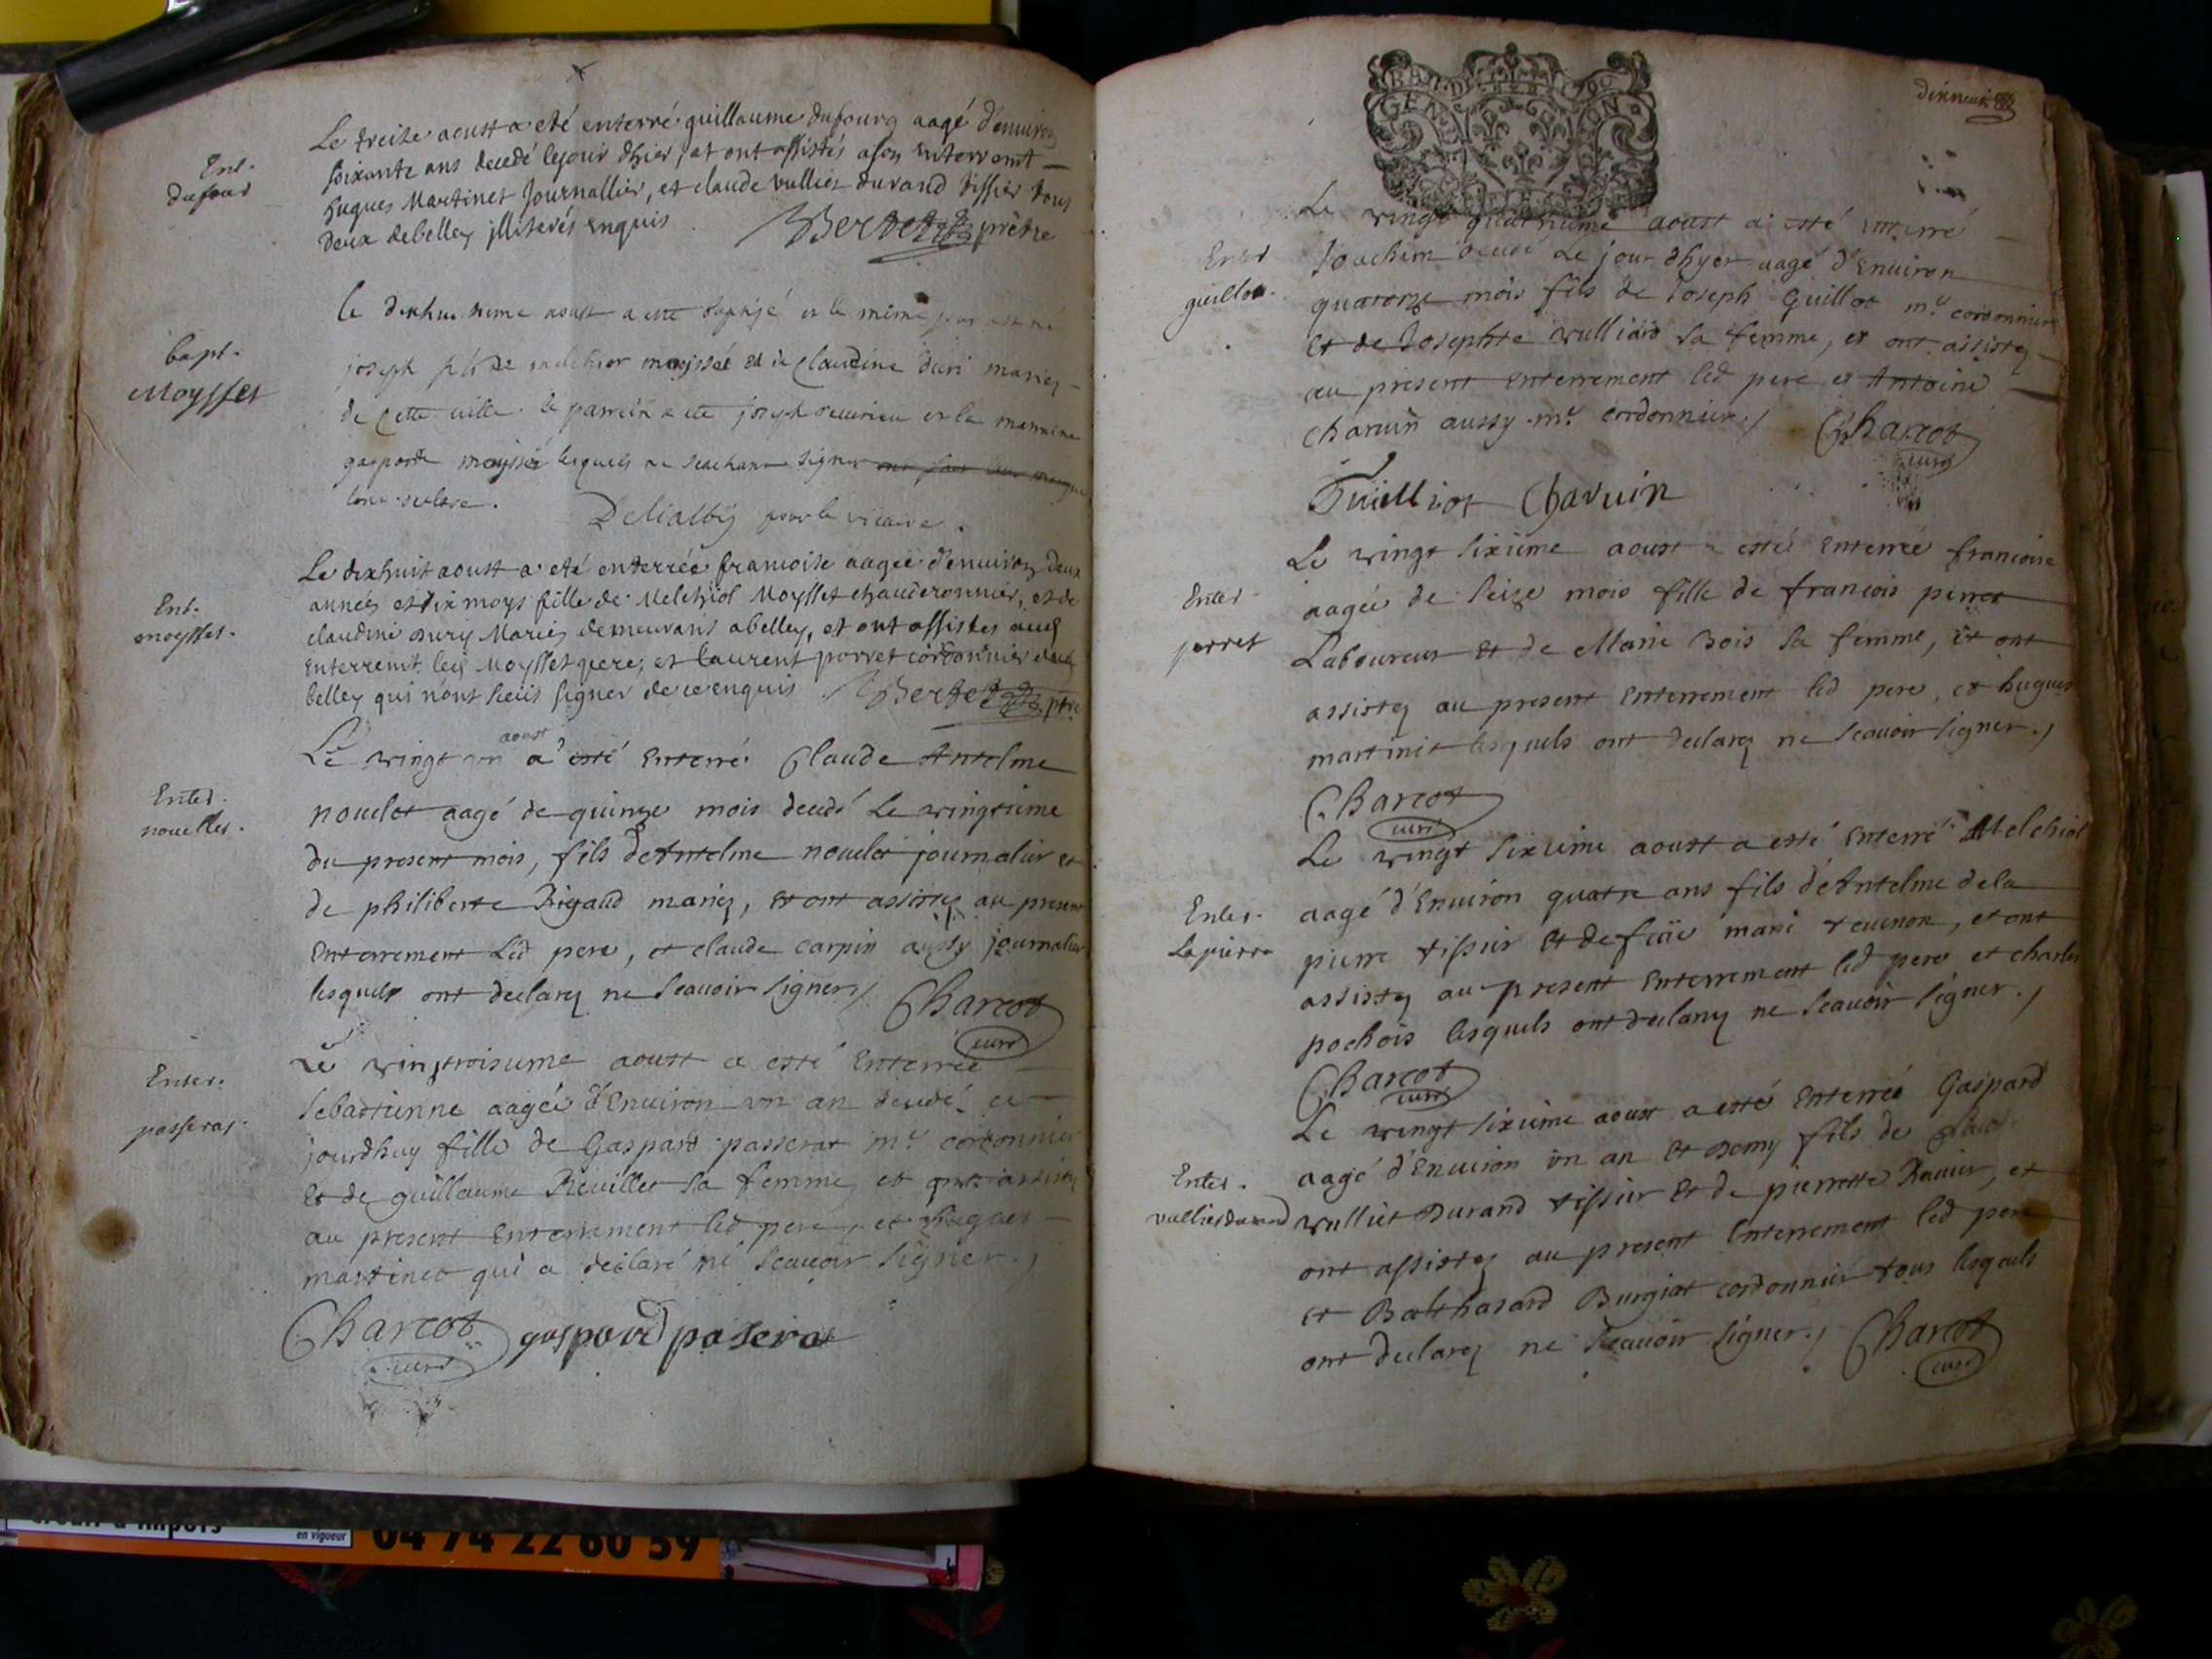 Ent.
dufour
Le treize aoust a eté enterré guillaume dufourg aagé d'enuiron
soixante ans decedé le jour d'hier, et ont assistés a son enterremt
hugues Martinet Journallier, et claude vullier durand tissier tous
deux de belley illiterés enquis Bertet prêtre
bapt.
Moysset
le dixhuitieme aoust a etté baptisé et le mime jour est né
joseph fils de melchior moysset et de Claudine duri mariez
de Cette uille. le parrein a eté joseph et la marraine
gasparde moysset lesquels ne scachant signer ont fait leur marque
Delialby pour le vicaire.
Ent.
moysset.
Le dixhuit aoust a eté enterrée francoise aagée d'enuiron deux
années et dix moys fille de Melchiol Moysset chauderonnier, et de
claudine dury Mariés demeurants a belley, et ont assistes aud
enterremt led Moysset pere, et laurent porret cordonnier dud
belley qui n'ont sceüs signer de ce enquis Bertet ptre
Enter.
nouellet.
Le vingt un aoust a esté Enterré Claude Antelme
nouelet aagé de quinze mois decedé Le vingtieme
du present mois, fils d'Antelme nouelet journalier et
de philiberte Rigaud mariez, et ont assistez au present
Enterrement Led pere, et claude carpin aussy journalier
lesquels ont declarez ne Scauoir Signer Charcot
curé
Enter.
passerat.
Le vingtroisieme aoust a esté Enterrée
Sebastienne aagée d'Enuiron un an decedé ce
jourdhuy fille de Gaspard passerat mr cordonnier
Et de guillaume Reuillet Sa femme, et ont assistez
au present Enterrement led pere, et hugues
martinet qui a declaré ne Scauoir Signer.
Charcot gaspard pasera
curé
GEN
dixneuf
Enter
guillot.
Le vingt quatrieme aoust a esté Enterré
Joachim decedé Le jour d'hyer aagé d'Enuiron
quatorze mois fils de Joseph Guillot mr cordonnier
Et de Josephte vulliard Sa femme, et ont assistez
au present Enterrement led pere et Antoine
Charuin aussy mr cordonnier. Charcot
curé
Guilliot Charuin
Enter
perret
Le vingt Sixieme aoust a esté Enterrée francoise
aagée de Seize mois fille de francois perret
Laboureur Et de Marie Bois Sa femme, et ont
assistez au present Enterrement led pere, et hugues
martinet lesquels ont declarez ne Scauoir Signer.
Charcot
curé
Enter.
Lapierre
Le vingt Sixieme aoust a esté Enterré Melchiol
aagé d'Enuiron quatre ans fils d'Antelme dela
pierre tissier Et de marie teuenon, et ont
assistez au present Enterrement led pere et charles
pochois lesquels ont declarez ne Scauoir Signer.
Charcot
curé
Enter.
vullier durand
Le vingt Sixieme aoust a esté Enterré Gaspard
aagé d'Enuiron un an Et Demy fils de
vulliet Durand tissier Et de pierrette Rauier, et
ont assistez au present Enterrement led pere
et Balthasard Burgiat cordonnier tous lesquels
ont declarez ne Scauoir Signer. Charcot
curé
en vigueur
04 74 22 60 59